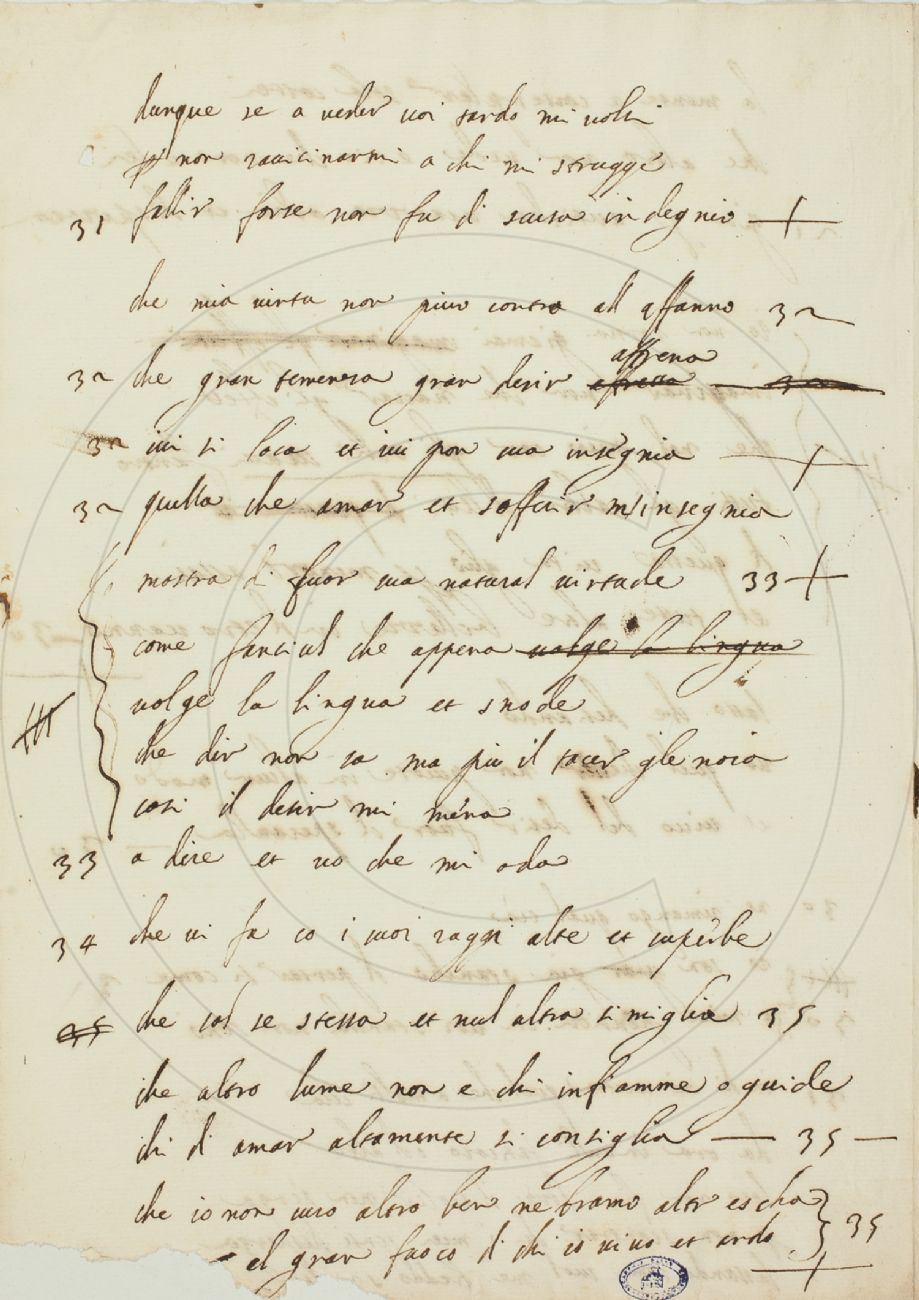 dunque se a veder voi tardo mi volsi
non ravicinarmi a chi mi strugge
31 fallir forse non fu di scusa indegnio
che mia virtu non puiu contra all affanno 32
affrena
32 che gran temenza gran desir
32 ivi si loca et ivi pon sua insegnia
32 quella che amar et soffrir m'insegnia
mostra di fuor sua natural virtude 33
come fanciul che appena volge la lingua
volge la lingua et snode
che dir non sa ma piu il tacer gle noia
cosi il desir mi mena
33 a dire et vo che mi oda
34 che vi fa co i suoi raggi alte et superbe
35 che sol se stessa et nul altra simiglia 35
che altro lume non e chi infiamme o guide
chi di amar altamente si consiglia 35
che io non curo altro ben ne bramo altr escha 35
el gran fuoco di chi io vivo et ardo